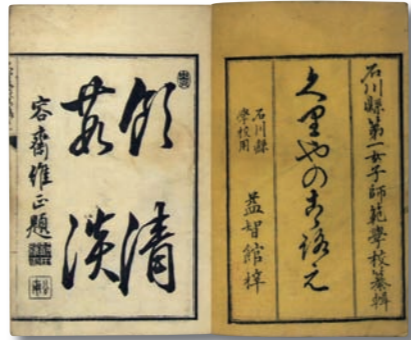 石川縣第一女子師範學校纂輯
く里やのこゝ路え
石川縣
學校用
益智館梓
飲清
茹淡
容齋維正題